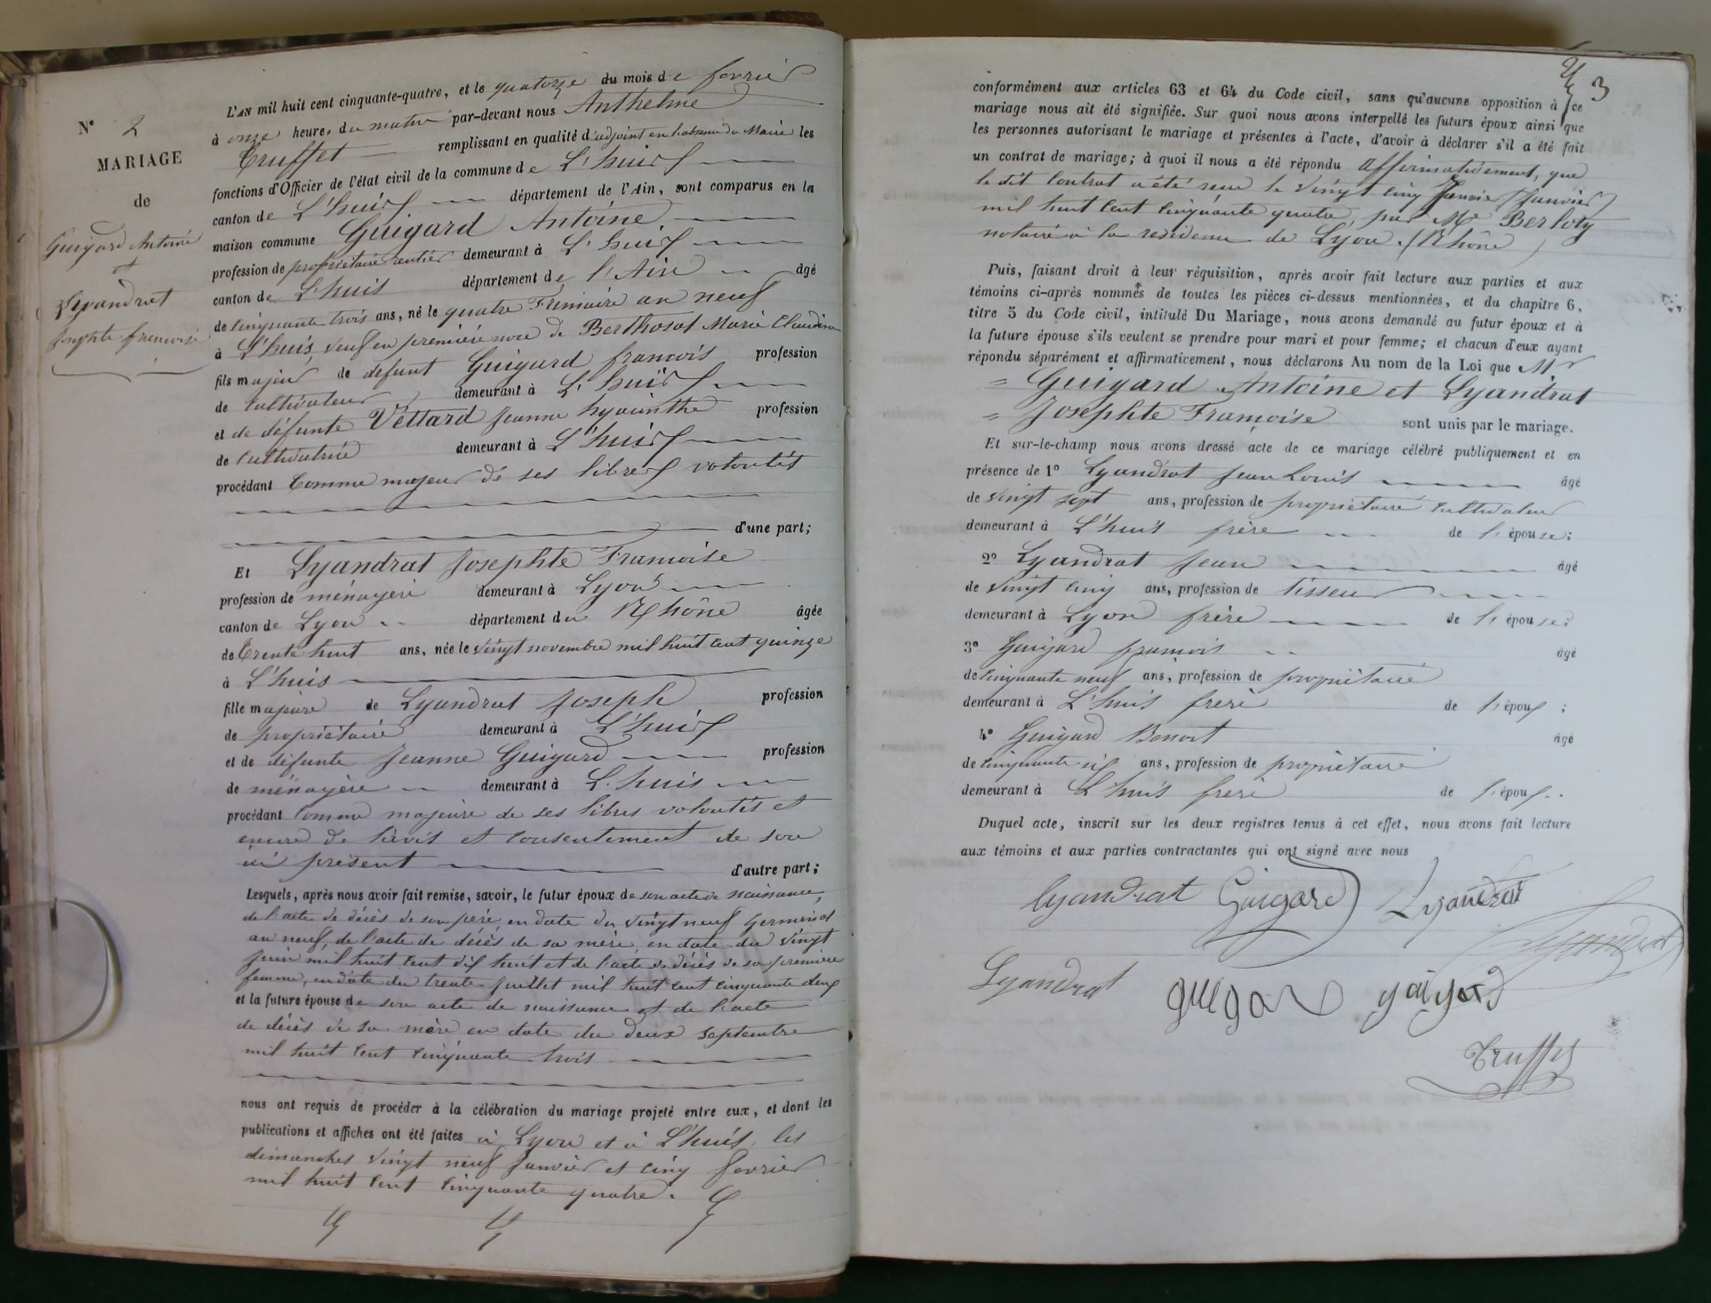 N° 2
MARIAGE
de
Guigard Antoine
et
Lyandrat
Josephte francoise
L'AN mil huit cent cinquante-quatre, et le quatorze du mois de fevrier
à onze heures du matin par-devant nous Anthelme
Truffet remplissant en qualité d'adjoint en l'absence du Maire les
fonctions d'Officier de l'état civil de la commune de L'huis
canton de L'huis département de l'Ain, sont comparus en la
maison commune Guigard Antoine
profession de propriétaire rentier demeurant à L'huis
canton de L'huis département de l'Ain âgé
de cinquante trois ans, né le quatre Frimaire an neuf
à L'huis, veuf en première noce de Berthosat Marie Claudine
fils majeur de défunt Guigard francois profession
de cultivateur demeurant à L'huis
et de défunte Vettard Jeanne hyacinthe profession
de cultivatrice demeurant à L'huis
procédant comme majeur de ses libres volontés
d'une part;
Et Lyandrat Josephte Francoise
profession de ménagère demeurant à Lyon
canton de Lyon département du Rhône âgée
de trente huit ans, née le vingt novembre mil huit cent quinze
à L'huis
fille majeure de Lyandrat Joseph profession
de propriétaire demeurant à L'huis
et de défunte Jeanne Guigard profession
de ménagère demeurant à L'huis
procédant comme majeure de ses libres volontés et
encore de l'avis et consentement de son
présent d'autre part;
Lesquels, après nous avoir fait remise, savoir, le futur époux de son acte de naissance,
de l'acte de décès de son père, en date du vingt neuf Germinal
an neuf, de l'acte de décès de sa mère en date du vingt
juin mil huit cent dix huit et de l'acte de décès de sa première
femme, en date du trente juillet mil huit cent cinquante deux
et la future épouse de son acte de naissance et de l'acte
de décès de sa mère en date du deux septembre
mil huit cent cinquante trois
nous ont requis de procéder à la célébration du mariage projeté entre eux, et dont les
publications et affiches ont été faites à Lyon et à L'huis, les
dimanches vingt neuf Janvier et cinq fevrier
mil huit cent cinquante quatre.
3
conformément aux articles 63 et 64 du Code civil, sans qu'aucune opposition à ce
mariage nous ait été signifiée. Sur quoi nous avons interpellé les futurs époux ainsi que
les personnes autorisant le mariage et présentes à l'acte, d'avoir à déclarer s'il a été fait
un contrat de mariage; à quoi il nous a été répondu affirmativement, que
le dit contrat a été reçu le vingt cinq Janvier (Janvier)
mil huit cent cinquante quatre, par Me Berloty
notaire à la residence de Lyon. (Rhône)
Puis, faisant droit à leur réquisition, après avoir fait lecture aux parties et aux
témoins ci-après nommés de toutes les pièces ci-dessus mentionnées, et du chapitre 6,
titre 5 du Code civil, intitulé Du Mariage, nous avons demandé au futur époux et à
la future épouse s'ils veulent se prendre pour mari et pour femme; et chacun d'eux ayant
répondu séparément et affirmativement, nous déclarons Au nom de la Loi que Mr
= Guigard Antoine et Lyandrat
= Josephte Françoise sont unis par le mariage.
Et sur-le-champ nous avons dressé acte de ce mariage célébré publiquement et en
présence de 1° Lyandrat Jean Louis âgé
de vingt sept ans, profession de propriétaire cultivateur
demeurant à L'huis frère de l'épouse;
2° Lyandrat Jean âgé
de vingt cinq ans, profession de tisseur
demeurant à Lyon frère de l'épouse;
3° Guigard francois âgé
de cinquante neuf ans, profession de propriétaire
demeurant à L'huis frère de l'époux;
4° Guigard Benoit âgé
de cinquante six ans, profession de propriétaire
demeurant à L'huis frère de l'époux.
Duquel acte, inscrit sur les deux registres tenus à cet effet, nous avons fait lecture
aux témoins et aux parties contractantes qui ont signé avec nous
Lyandrat Guigard Lyandrat
Lyandrat
Lyandrat guigar guigard
Truffet